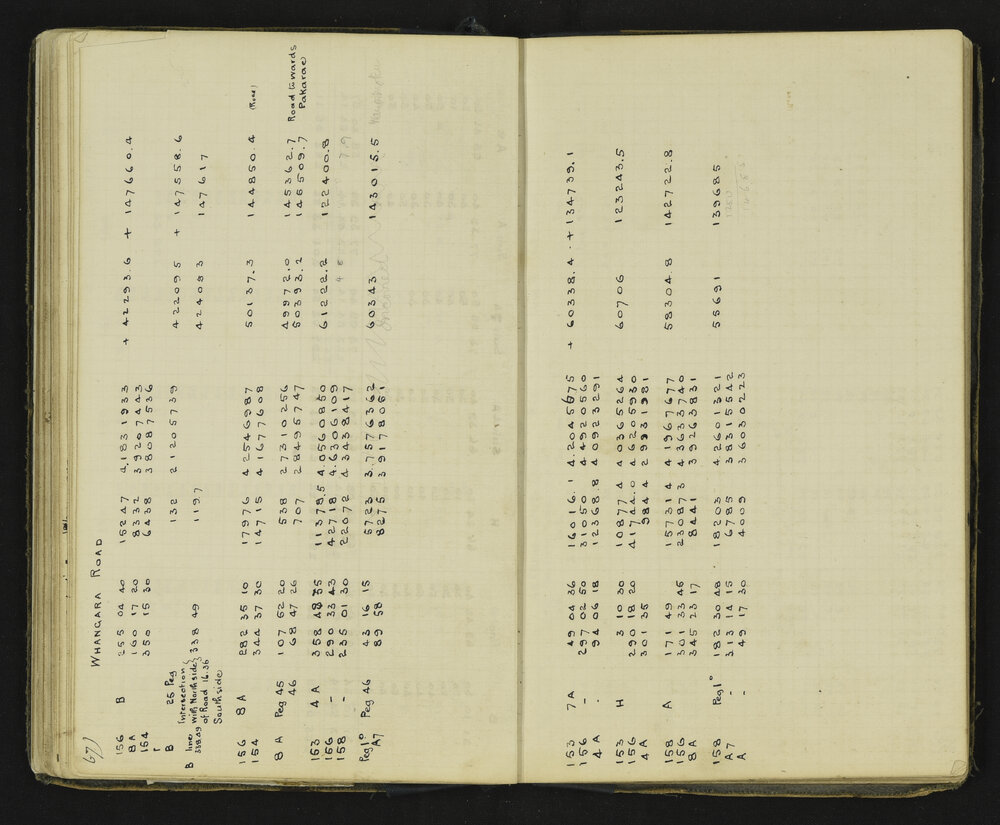 67)
WHANGARA ROAD
156 B 255 04 40 15247 4.1831933 + 42293.6 + 147660.4
8A 160 17 20 8332 3.9207443
154 350 15 30 6438 3.8087536
r
B 25 Peg 132 2.1205739 422095 + 147558.6
B line 338 49 Intersection with Northside of Road 16.36 338 49 1197 424083 147617
South side
156 8A 282 35 10 17976 4.2546987 50137.3 144850.4 (Road)
154 344 37 30 14715 4.1677608
8A Peg 45 107 52 20 538 2.7310256 49972.0 145362.7 Road towards
46 68 47 26 707 2.8495747 50393.2 145509.7 Pakarae
153 4A 358 48 35 11378.5 4.0560850 61222.2 122400.8
156 - 290 33 43 42718 4.6306109
158 - 235 01 30 22072 4.3438417
Peg 1° Peg 46 43 16 15 5723 3.7576362 60343 143015.5
A7 89 58 8275 3.9178051
153 7A 49 04 36 16016.1 4.2045675 + 60338.4 + 134739.1
156 - 297 02 50 31050 4.4920560
4A - 94 06 18 12368.8 4.0923291
153 H 3 10 30 10877.4 4.0365264 60706 123243.5
156 290 18 20 41744.0 4.6205930
4A 301 35 984.4 2.9931981
158 A 171 49 15731.4 4.1967677 58304.8 142722.8
156 301 33 46 23087.3 4.3633740
8A 345 23 17 8441 3.9263831
158 Peg 1° 182 30 48 18203 4.2601321 55691 139685
A7 - 313 14 15 6785 3.8315542
A - 49 17 30 4009 3.6030223